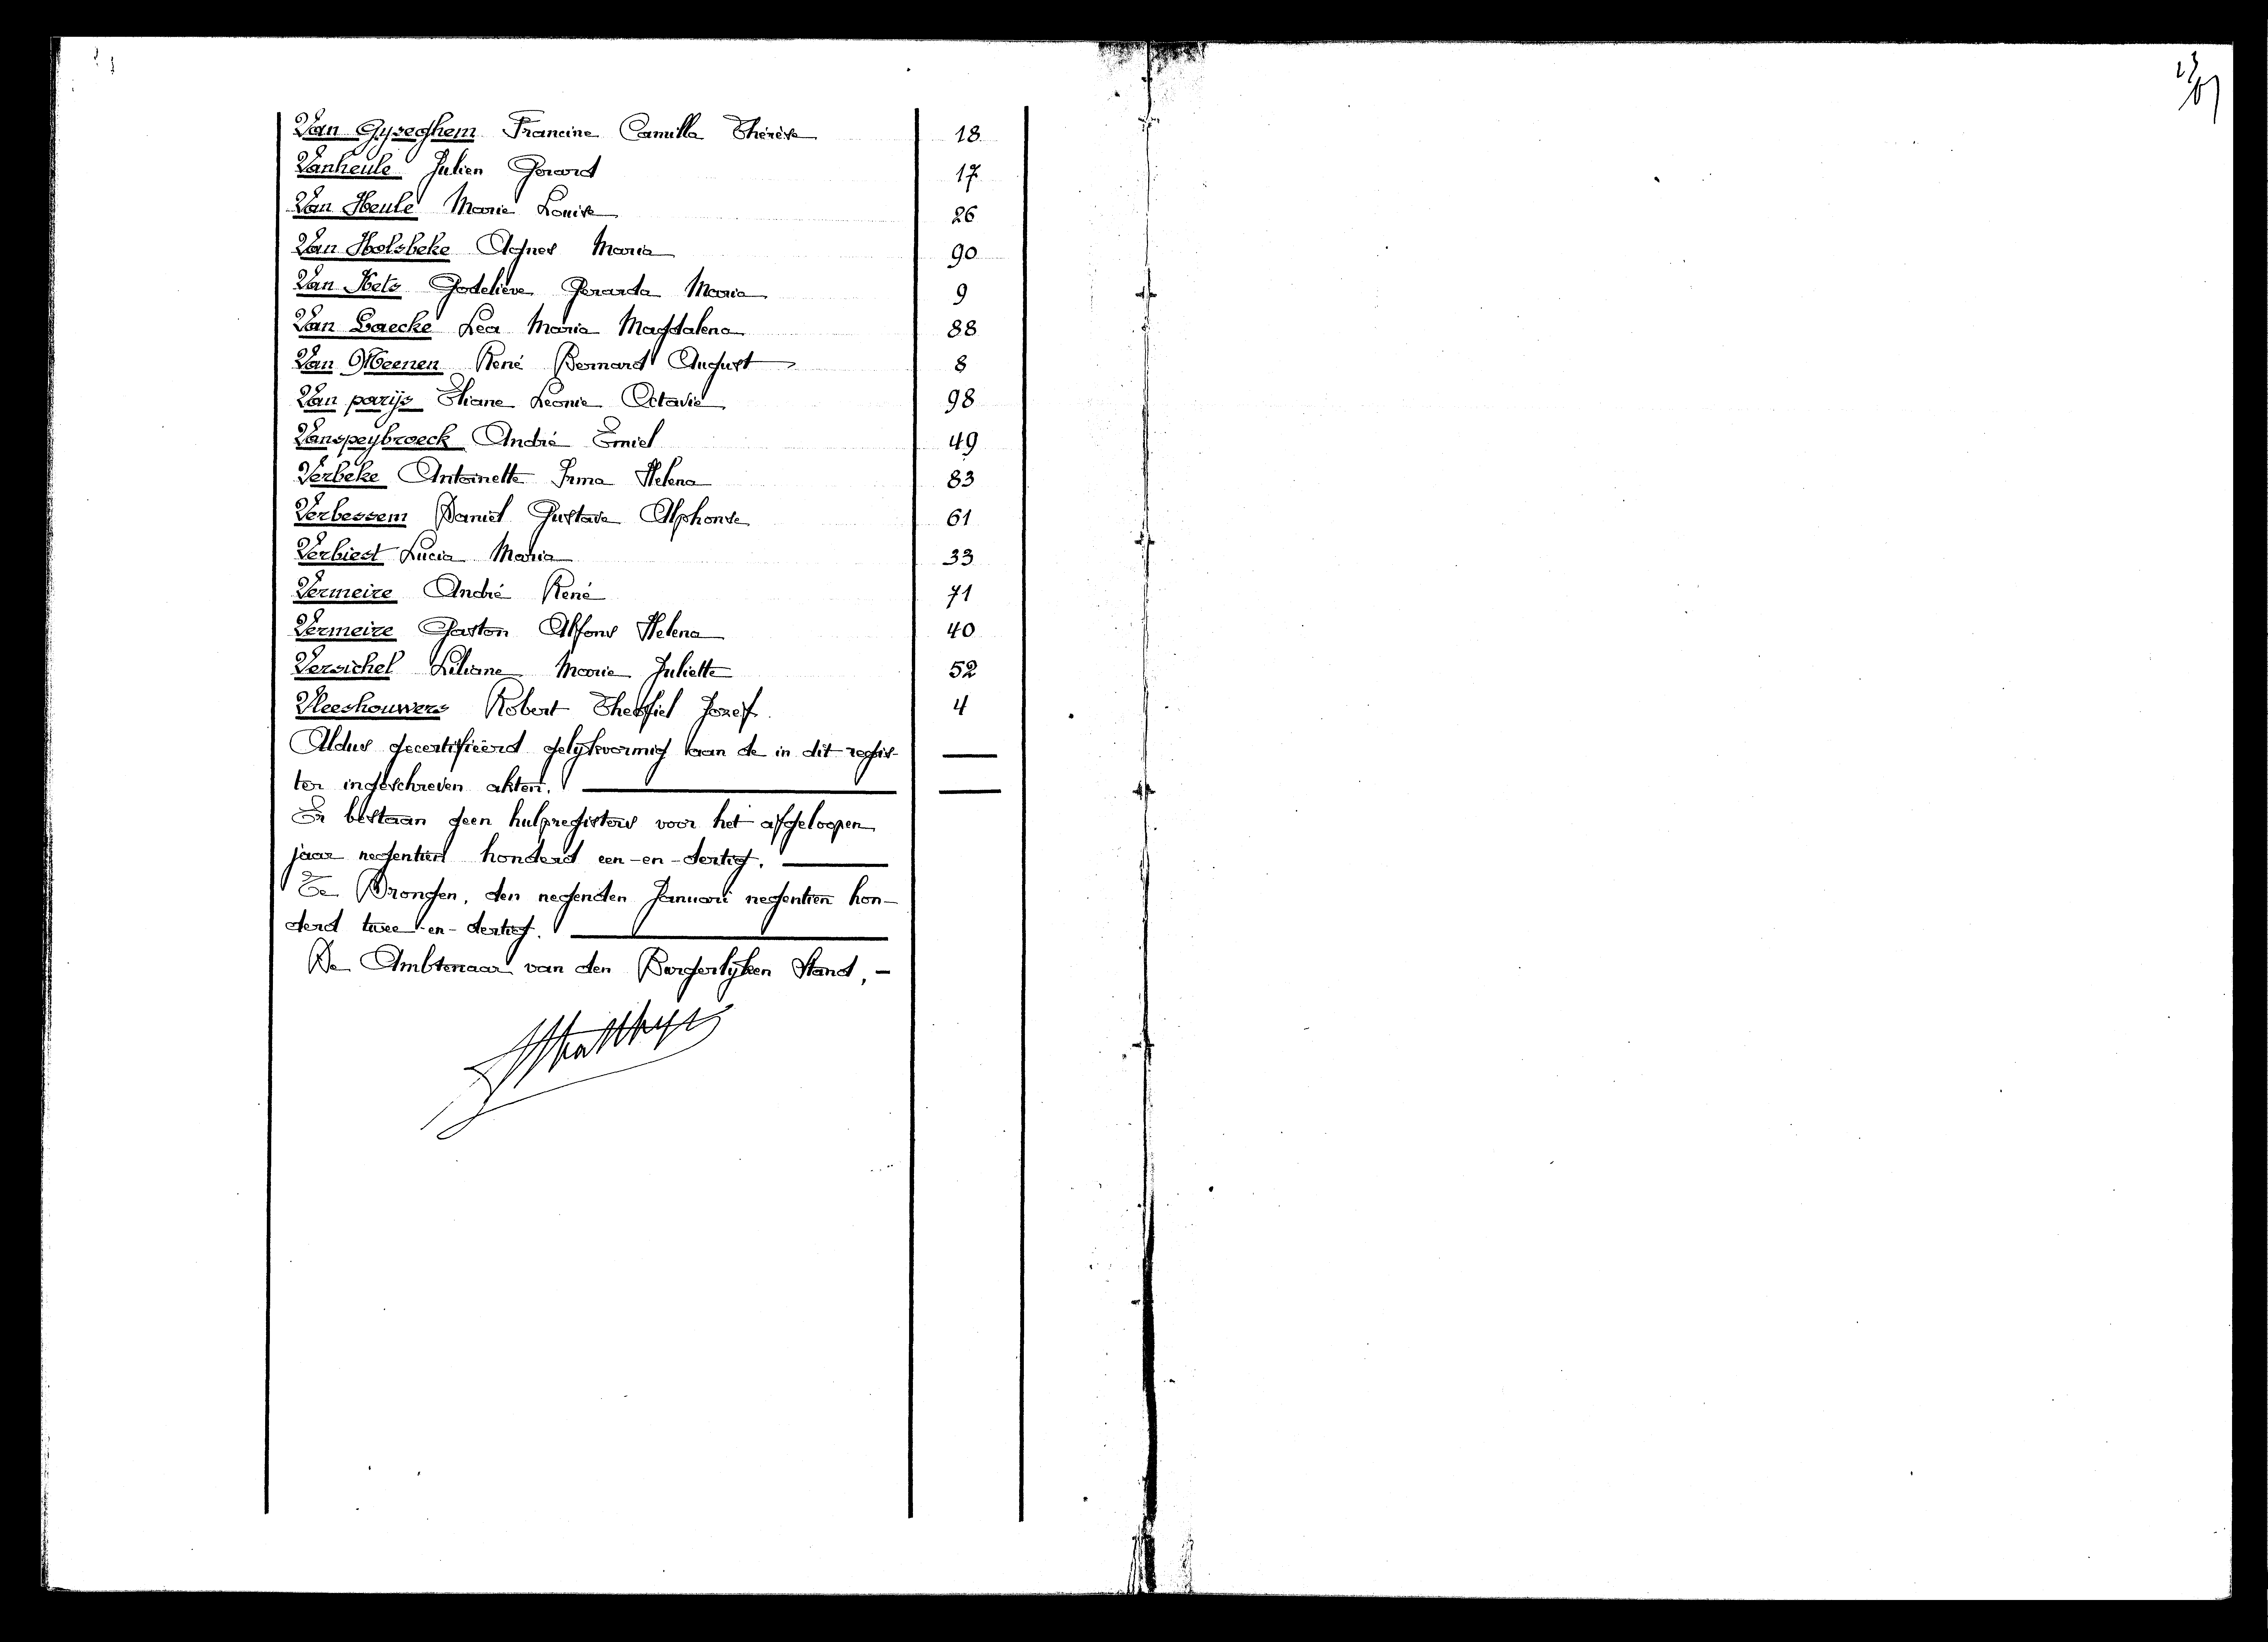 Van Gyseghem Francine Camilla Thérèse 18
Vanheule Julien Gerard 17
Van Heule Marie Louise 26
Van Holsbeke Agnes Maria 90
Van Hets Godelieve Gerarda Maria 9
Van Laecke Lea Maria Magdalena 88
Van Meenen René Bernard August 8
Van parijs Eliane Leonie Octavie 98
Vanspeybroeck André Emiel 49
Verbeke Antoinette Irma Helena 83
Verbessem Daniel Gustave Alphonse 61
Verbiest Lucia Maria 33
Vermeire André René 71
Vermeire Gaston Alfons Helena 40
Versichel Liliane Marie Juliette 52
Vleeshouwers Robert Theofiel Jozef 4
Aldus gecertifieerd gelijkvormig aan de in dit regis-
ter ingeschreven akten.
Er bestaan geen hulpregisters voor het afgeloopen
jaar negentien honderd een-en-dertig.
Te Drongen, den negenden Januari negentien hon-
derd twee-en-dertig.
De Ambtenaar van den Burgerlijken Stand,